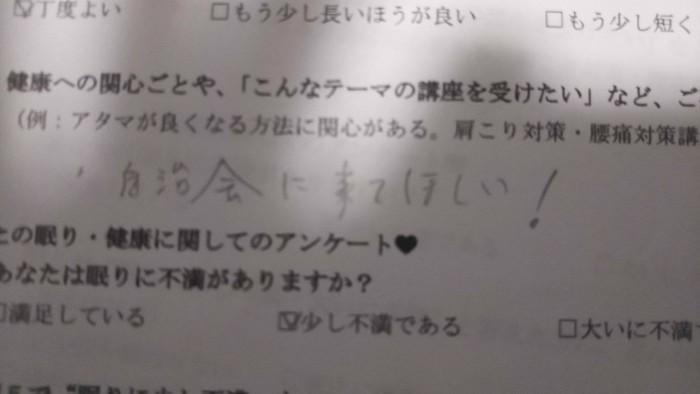 ☑丁度よい □もう少し長いほうが良い □もう少し短く
健康への関心ごとや、「こんなテーマの講座を受けたい」など、ご
(例：アタマが良くなる方法に関心がある。肩こり対策・腰痛対策講
自治会に来てほしい！
の眠り・健康に関してのアンケート♥
あなたは眠りに不満がありますか？
□満足している ☑少し不満である □大いに不満